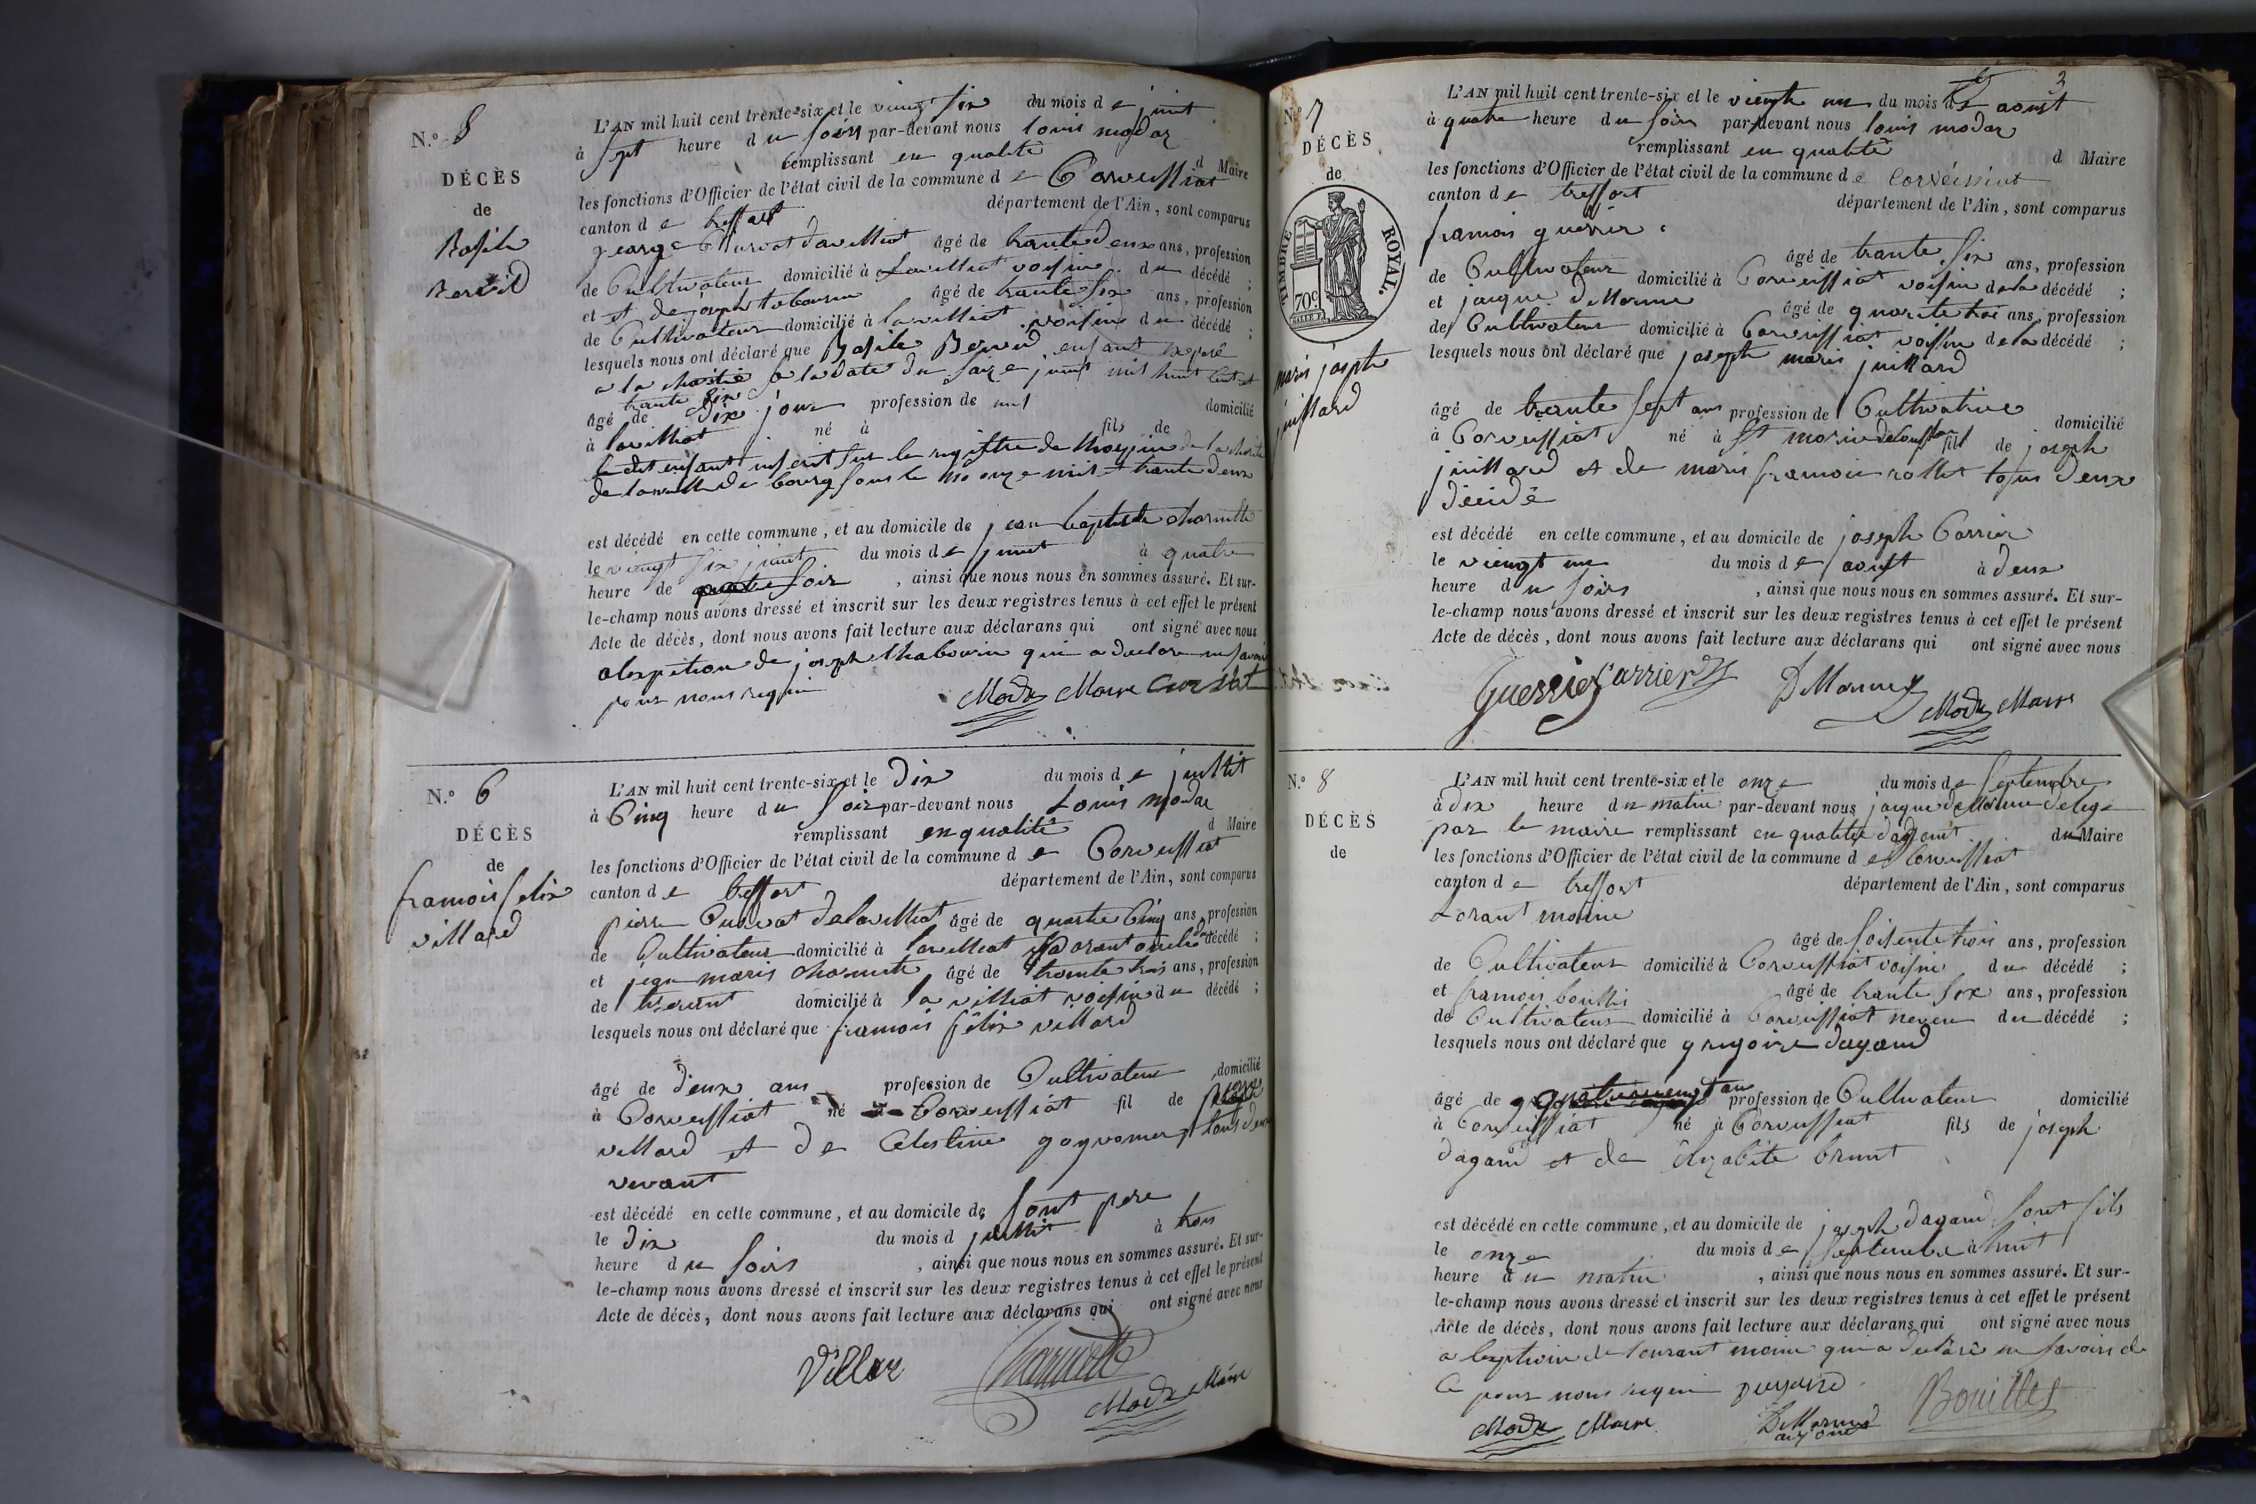 N.º 5
DÉCÈS
de
Basile
L'AN mil huit cent trente-six et le vieingt six du mois de juint
à sept heure du soirs par-devant nous louis modas
remplissant en qualité d Maire
les fonctions d'Officier de l'état civil de la commune de Corveissiat
canton de treffort département de l'Ain, sont comparus
george Curvat âgé de trante deux ans, profession
de Cultivateur domicilié à Lavilliat voisin du décédé ;
et et de joseph âgé de trante six ans, profession
de Cultivateur domicilié à lavilliat voisin du décédé ;
lesquels nous ont déclaré que Basile enfant exposé
a la charité a la date du saize juint mil huit cent
trante six
âgé de dix jour profession de domicilié
à lavilliat né à fils de
le dit enfant inscrit sur le registre de de la charité
de la ville de bourg sous le no onze mil trante deux
est décédé en cette commune, et au domicile de jean baptiste charnette
le vieingt six juint du mois de juint à quatre
heure de soir , ainsi que nous nous en sommes assuré. Et sur-
le-champ nous avons dressé et inscrit sur les deux registres tenus à cet effet le présent
Acte de décès, dont nous avons fait lecture aux déclarans qui ont signé avec nous
de joseph qui a declare
pour nous requi Modas Maire Curvat
N.º 6
DÉCÈS
de
framois felix
villard
L'AN mil huit cent trente-six et le dix du mois de juillit
à Cinq heure du soir par-devant nous Louis modas
remplissant en qualité d Maire
les fonctions d'Officier de l'état civil de la commune de Corveissiat
canton de treffort département de l'Ain, sont comparus
pierre Curvat de lavilliat âgé de quarante Cinq ans profession
de Cultivateur domicilié à lavilliat décédé ;
et jean maris charnette âgé de trante trois ans, profession
de domicilié à la villiat voisin du décédé ;
lesquels nous ont déclaré que framois félix villard
âgé de deux ans profession de Cultivateur domicilié
à Corveissiat né à Corveissiat fil de
villard et de Celestine tous deux
vivant
est décédé en cette commune, et au domicile de sont pere
le dix du mois d juillit à trois
heure du soirs , ainsi que nous nous en sommes assuré. Et sur-
le-champ nous avons dressé et inscrit sur les deux registres tenus à cet effet le présent
Acte de décès, dont nous avons fait lecture aux déclarans qui ont signé avec nous
Villar Charnette
Modas Maire
3
N.º 7
DÉCÈS
de
TIMBRE ROYAL.
70c
maris joseph
juillard
L'AN mil huit cent trente-six et le vieingt un du mois d aoust
à quatre heure du soirs par-devant nous louis modas
remplissant en qualité d Maire
les fonctions d'Officier de l'état civil de la commune de Corveissiat
canton de treffort département de l'Ain, sont comparus
framois guerrier
âgé de trante six ans, profession
de Cultivateur domicilié à Corveissiat voisin de la décédé ;
et jacque deMonne âgé de quarante trois ans, profession
de Cultivateur domicilié à Corveissiat voisin de la décédé ;
lesquels nous ont déclaré que joseph maris juillard
âgé de trante sept ans profession de Cultivatrice domicilié
à Corveissiat né à fill de joseph
juillard et de maris framoise rollet tous deux
décidé
est décédé en cette commune, et au domicile de joseph Carrier
le vieingt un du mois de aoust à deux
heure du soirs , ainsi que nous nous en sommes assuré. Et sur-
le-champ nous avons dressé et inscrit sur les deux registres tenus à cet effet le présent
Acte de décès, dont nous avons fait lecture aux déclarans qui ont signé avec nous
Guerrier Carrier DeMonne Modas Maire
N.º 8
DÉCÈS
de
L'AN mil huit cent trente-six et le onze du mois de septembre
à dix heure du matin par-devant nous jacque deMonne delegé
par le maire remplissant en qualité d'adjoint du Maire
les fonctions d'Officier de l'état civil de la commune de Corveissiat
canton de treffort département de l'Ain, sont comparus
Lorant moine
âgé de soisente trois ans, profession
de Cultivateur domicilié à Corveissiat voisin du décédé ;
et framois bouillis âgé de trante six ans, profession
de Cultivateur domicilié à Corveissiat neveu du décédé ;
lesquels nous ont déclaré que gregoire dagand
âgé de ans profession de Cultivateur domicilié
à Corveissiat né à Corveissiat fils de joseph
dagand et de élizabéte brunt
est décédé en cette commune, et au domicile de joseph dagand sont fils
le onze du mois de septembre à huit
heure du matin , ainsi que nous nous en sommes assuré. Et sur-
le-champ nous avons dressé et inscrit sur les deux registres tenus à cet effet le présent
Acte de décès, dont nous avons fait lecture aux déclarans qui ont signé avec nous
a lexption de Lourant moine qui a declaré ne savoir de
Ce pour nous requi Bouillet
Modas Maire DeMonne